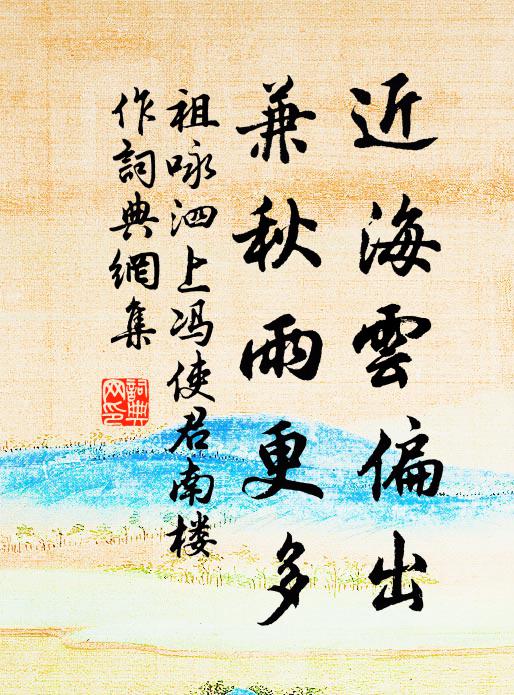 近海雲偏出
兼秋雨更多
祖咏泗上冯使君南楼
作詞典網集
詞典
网印